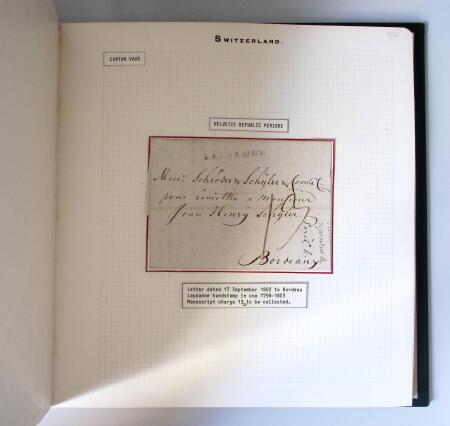 SWITZERLAND.
CANTON VAUD
HELVETIC REPUBLIC PERIODE
LAUSANNE
Messrs Schröder & Schÿler & Comp
pour remettre a Monsieur
Jean Henry Schÿler
Bordeaux
Letter dated 17 September 1802 to Bordeau
Lausanne handstamp in use 1798-1803
Manuscript charge 13 to be collected.